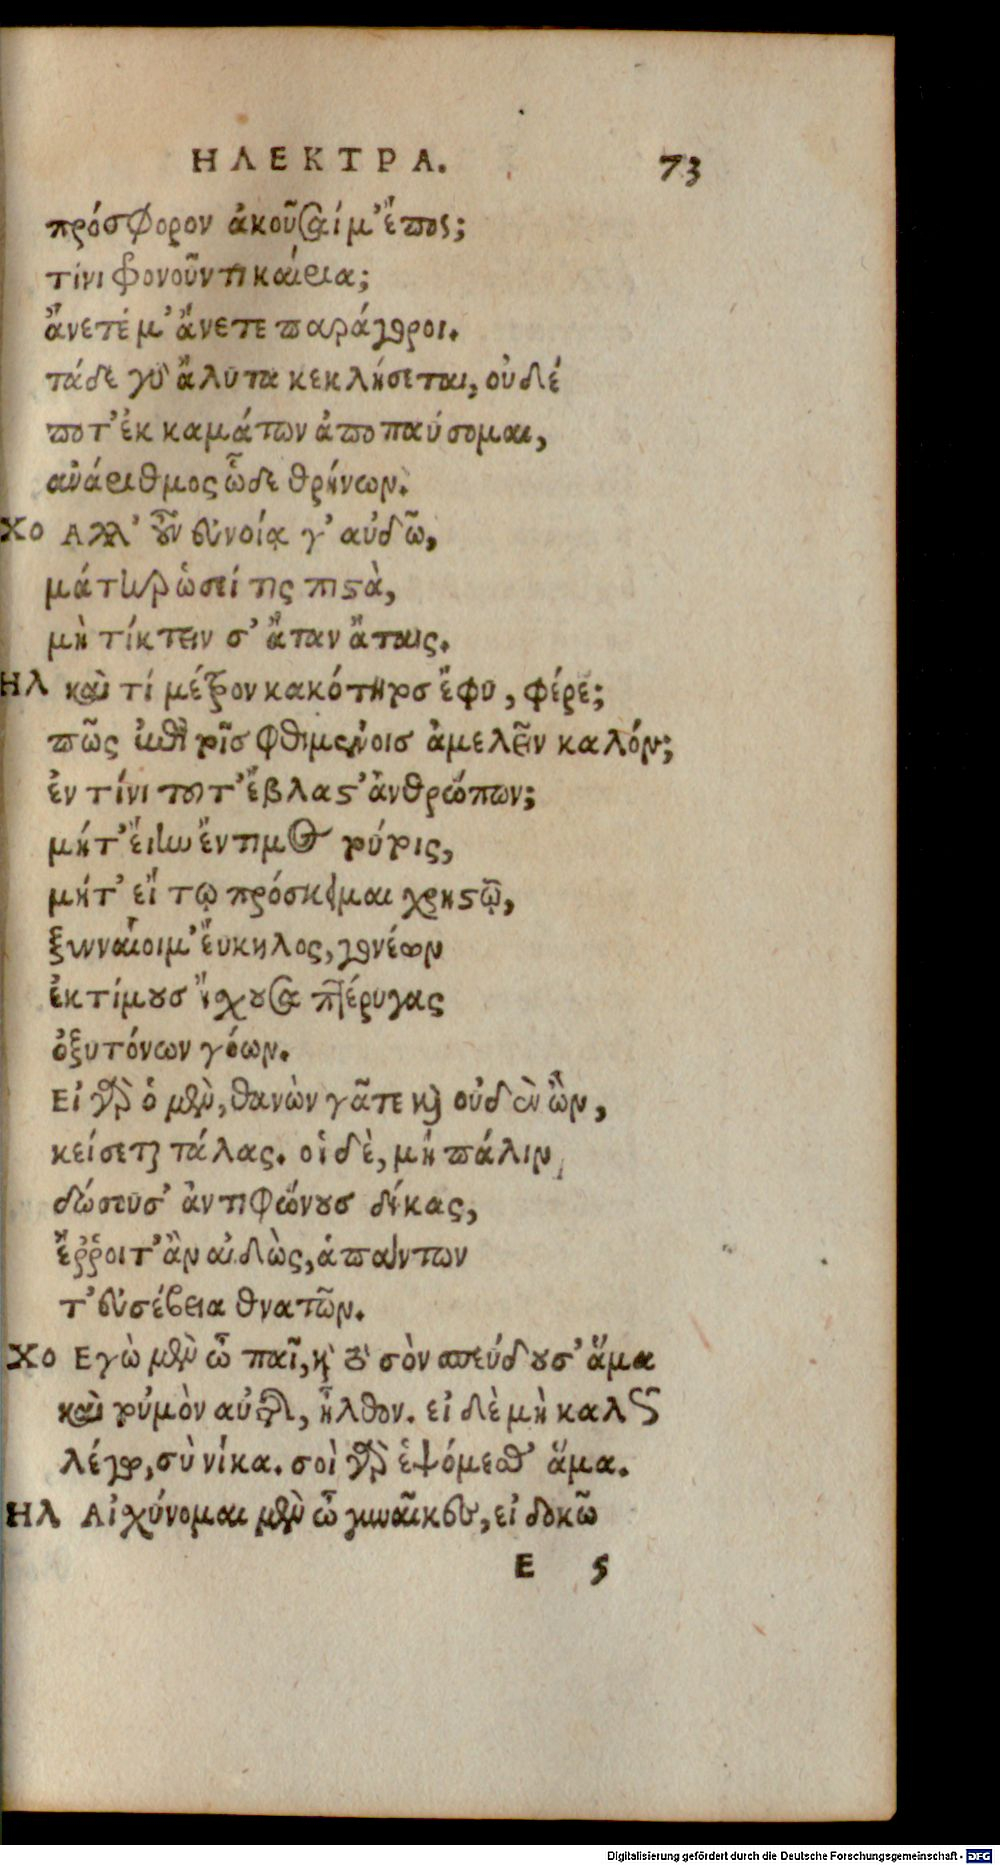 ΗΛΕΚΤΡΑ. 73
πρόσφορον ἀκούσαιμ' ἔπος;
τίνι φρονοῦντι καίρια;
ἄνετέ μ' ἄνετε παράγοροι.
τάδε γὰρ ἄλυτα κεκλήσεται, οὐδέ
ποτ' ἐκ καμάτων ἀποπαύσομαι,
ἀνάριθμος ὧδε θρήνων.
ΧΟ Αλλ' οὖν εὐνοίᾳ γ' αὐδῶ,
μάτηρ ὡσεί τις πιστὰ,
μὴ τίκτειν σ' ἄταν ἄταις.
ΗΛ καὶ τί μέτρον κακότητος ἔφυ, φέρε;
πῶς ἐπὶ τοῖς φθιμένοις ἀμελεῖν καλόν;
ἐν τίνι τοῦτ' ἔβλαστ' ἀνθρώπων;
μήτ' εἴην ἔντιμος τούτοις,
μήτ' εἴ τῳ πρόσκειμαι χρηστῷ,
ξυνναίοιμ' εὔκηλος, γονέων
ἐκτίμους ἴσχουσα πτέρυγας
ὀξυτόνων γόων.
Εἰ γὰρ ὁ μὲν, θανὼν γᾶ τε καὶ οὐδὲν ὢν,
κείσεται τάλας. οἱ δὲ, μὴ πάλιν
δώσουσ' ἀντιφόνους δίκας,
ἔρροιτ' ἂν αἰδὼς, ἁπάντων
τ' εὐσέβεια θνατῶν.
ΧΟ Εγὼ μὲν ὦ παῖ, καὶ τὸ σὸν σπεύδουσ' ἅμα
καὶ τοὐμὸν αὐτῆς, ἦλθον. εἰ δὲ μὴ καλῶς
λέγω, σὺ νίκα. σοὶ γὰρ ἑψόμεσθ' ἅμα.
ΗΛ Αἰσχύνομαι μὲν ὦ γυναῖκες, εἰ δοκῶ
E 5
Digitalisierung gefördert durch die Deutsche Forschungsgemeinschaft - DFG